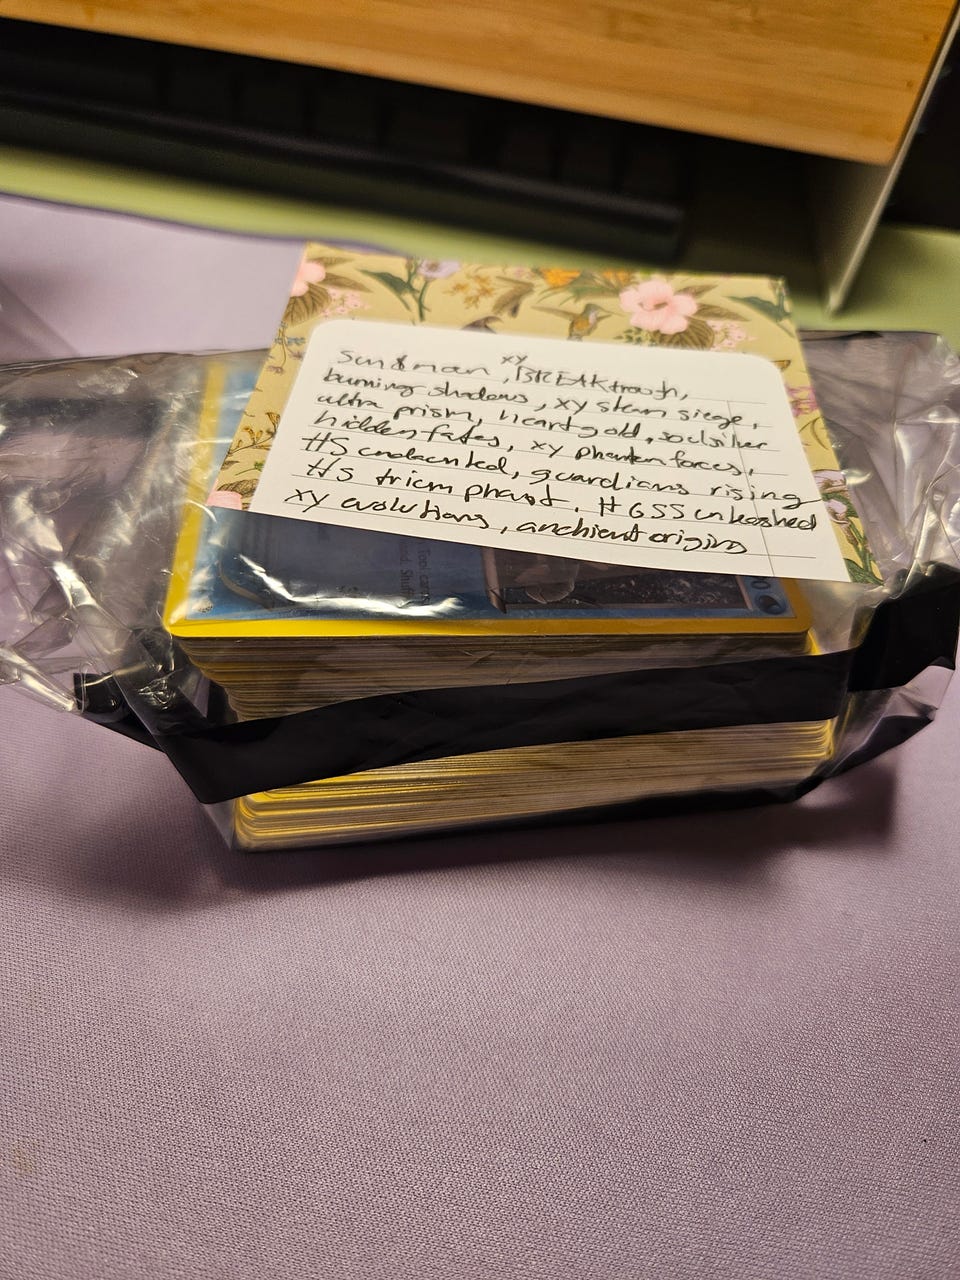 Sun & moon, xy BREAKthrough,
burning shadows, xy steam siege,
ultra prism, heartgold, soulsilver
hidden fates, xy phantom forces,
HS undaunted, guardians rising
HS triumphant, HGSS unleashed
xy evolutions, anchient origins